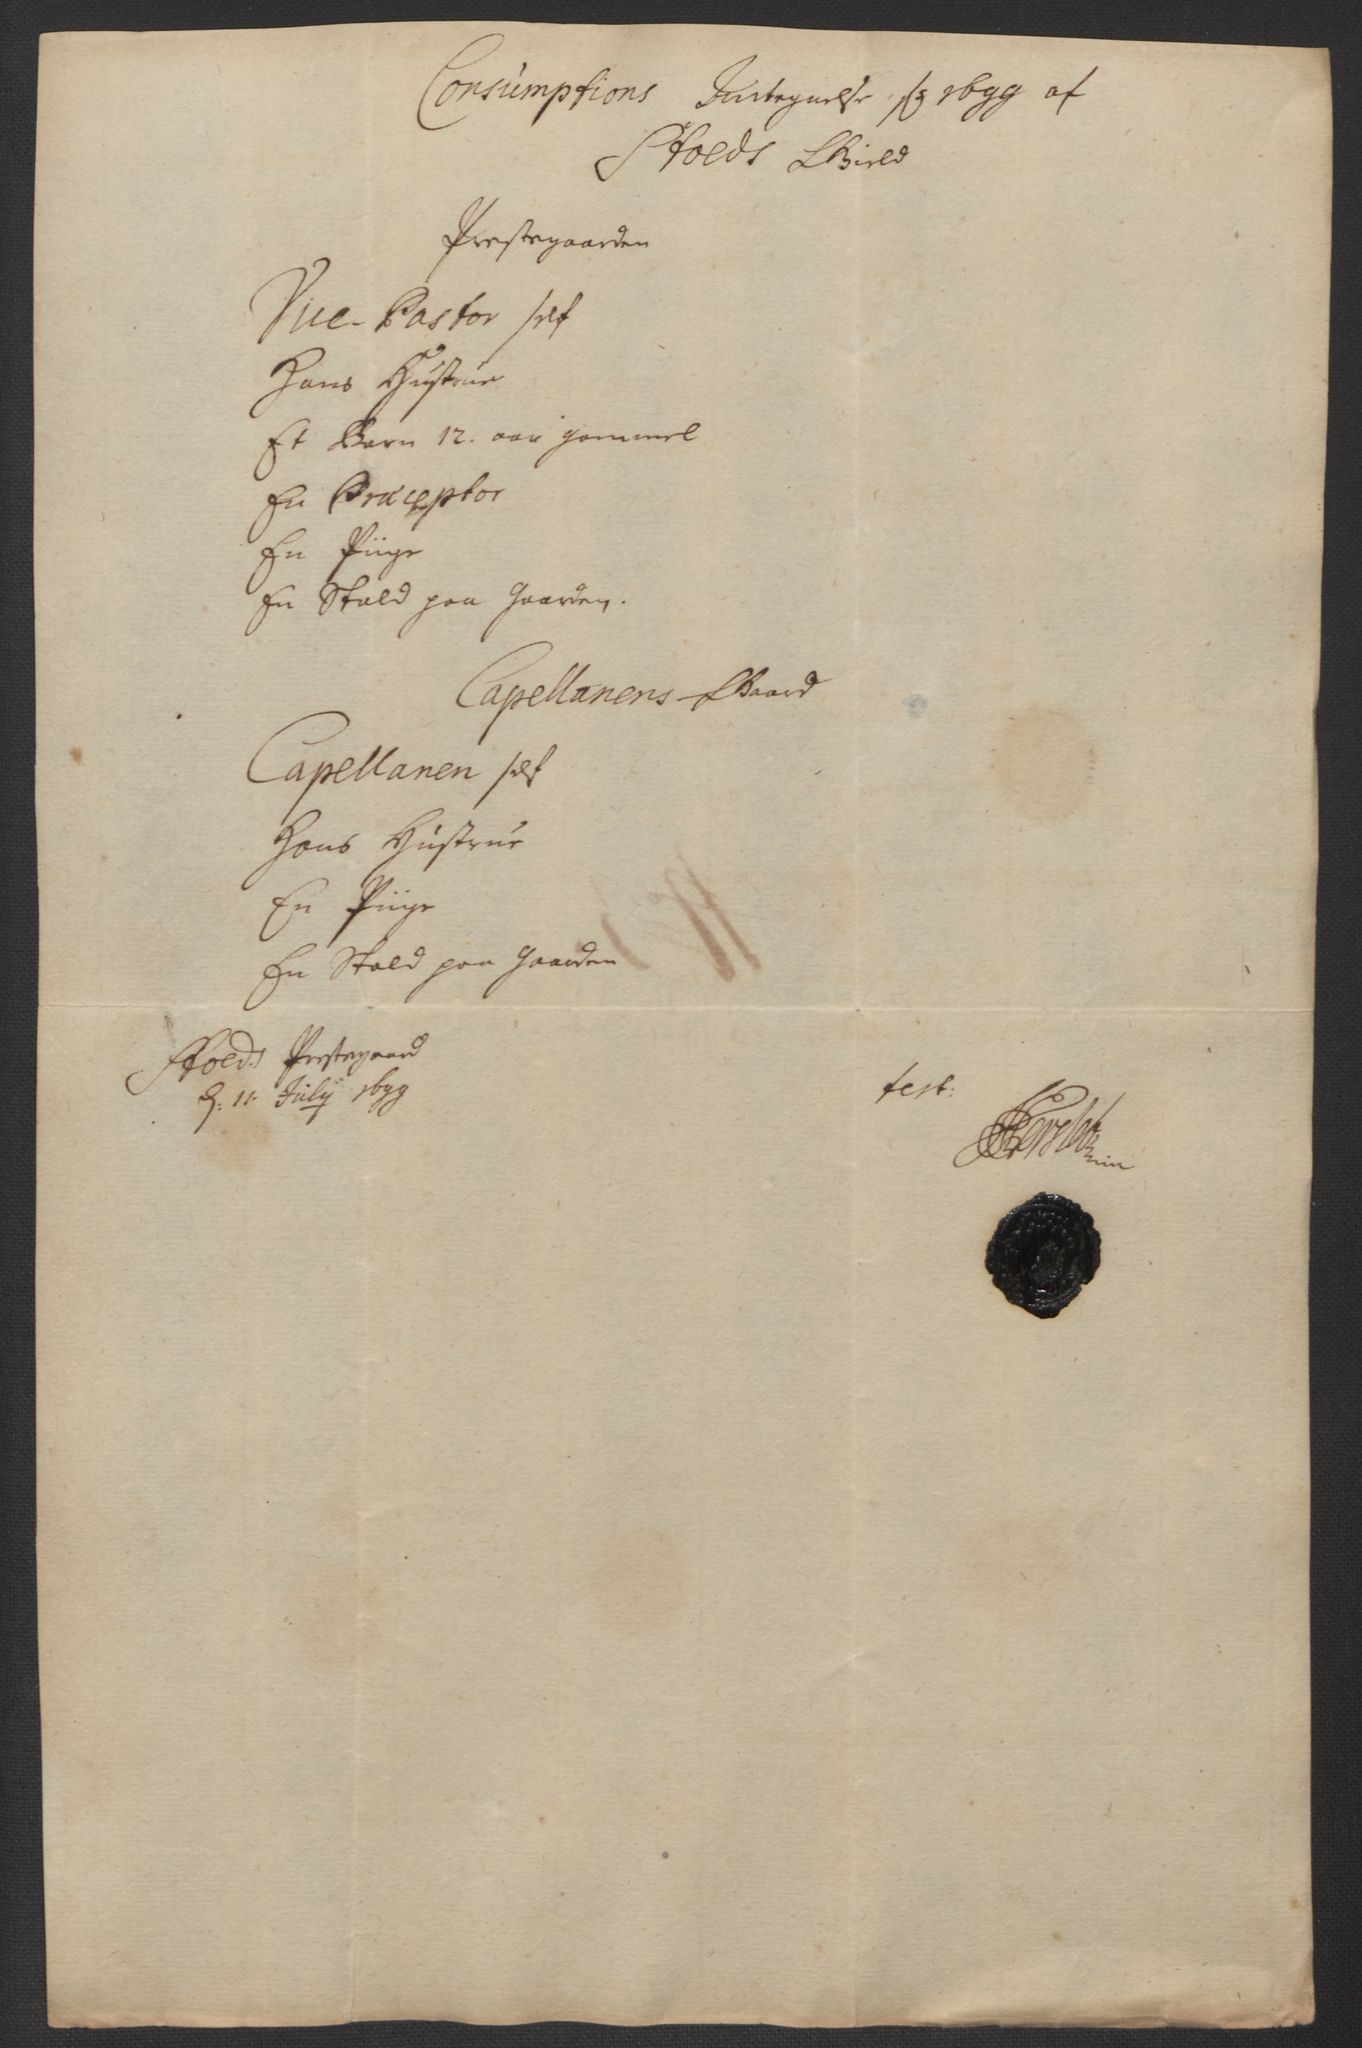 Consumptions Indtegnelse pro 1699 af
Stoeds Gield
Prestegaarden
Vice-Pastor self
Hans Hustrue
Et Barn 12. aar gammel
En Præceptor
En Piige
En Stald paa Gaarden.
Capellanens-Gaard
Capellanen self
Hans Hustrue
En Piige
En Stald paa Gaarden
Stoeds Prestegaard
d: 11. July 1699
test: